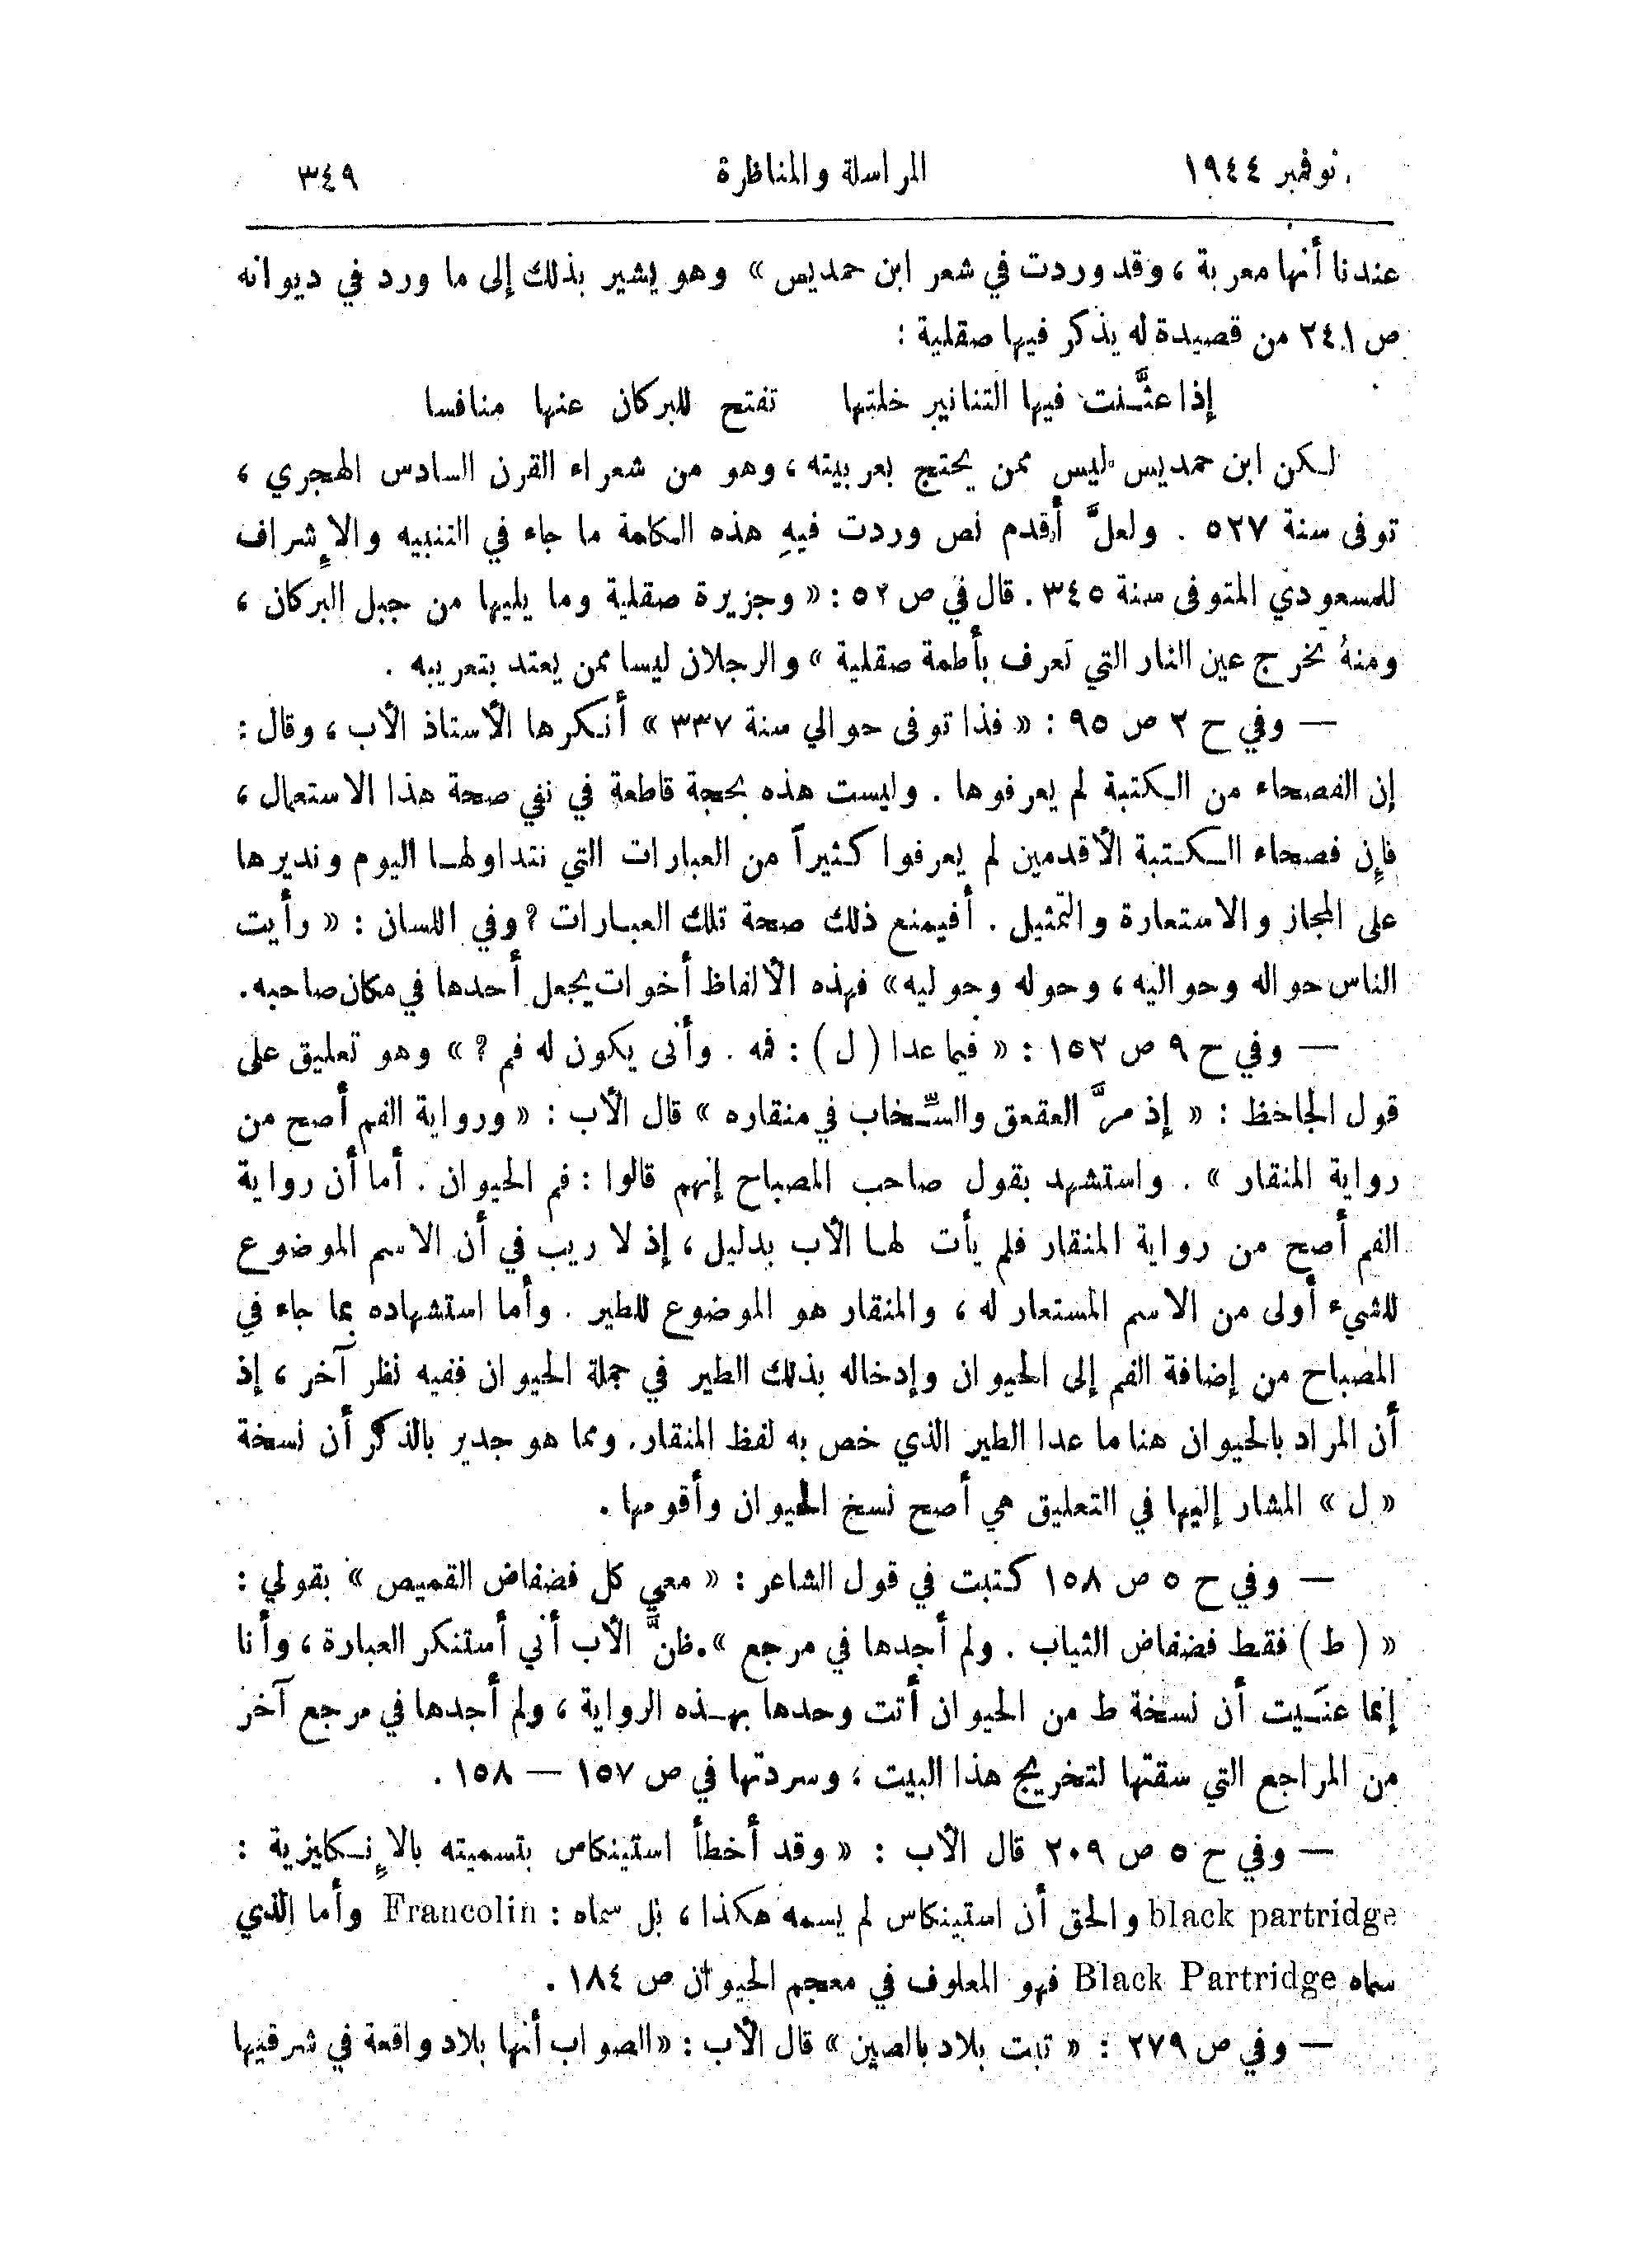 نوفمبر ١٩٤٤ المراسلة والمناظرة ٣٤٩
عندنا أنها معربة ، وقد وردت في شعر ابن حمديس » وهو يشير بذلك إلى ما ورد في ديوانه
ص ٢٤١ من قصيدة له يذكر فيها صقلية :
إذا عثَّنت فيها التنانير خلتها تفتح للبركان عنها منافسا
لكن ابن حمديس ليس ممن يحتج بعربيته ، وهو من شعراء القرن السادس الهجري ،
توفى سنة ٥٢٧ . ولعلَّ أقدم نص وردت فيهِ هذه الكلمة ما جاء في التنبيه والإشراف
للمسعودي المتوفى سنة ٣٤٥ . قال في ص ٥٢ : « وجزيرة صقلية وما يليها من جبل البركان ،
ومنهُ تخرج عين النار التي تعرف بأطمة صقلية » والرجلان ليسا ممن يعتد بتعريبه .
— وفي ح ٢ ص ٩٥ : « فذا توفى حوالي سنة ٣٣٧ » أنكرها الأستاذ الأب ، وقال :
إن الفصحاء من الكتبة لم يعرفوها . وليست هذه بحجة قاطعة في نفي صحة هذا الاستعمال ،
فإن فصحاء الكتبة الأقدمين لم يعرفوا كثيراً من العبارات التي نتداولها اليوم ونديرها
على المجاز والاستعارة والتمثيل . أفيمنع ذلك صحة تلك العبارات ؟ وفي اللسان : « رأيت
الناس حواله وحواليه ، وحوله وحوليه » فهذه الألفاظ أخوات يجعل أحدها في مكان صاحبه .
— وفي ح ٩ ص ١٥٢ : « فيما عدا ( ل ) : فمه . وأنى يكون له فم ؟ » وهو تعليق على
قول الجاحظ : « إذ مرَّ العقعق والسِّخاب في منقاره » قال الأب : « ورواية الفم أصح من
رواية المنقار » . واستشهد بقول صاحب المصباح إنهم قالوا : فم الحيوان . أما أن رواية
الفم أصح من رواية المنقار فلم يأت لها الأب بدليل ، إذ لا ريب في أن الاسم الموضوع
للشيء أولى من الاسم المستعار له ، والمنقار هو الموضوع للطير . وأما استشهاده بما جاء في
المصباح من إضافة الفم إلى الحيوان وإدخاله بذلك الطير في جملة الحيوان ففيه نظر آخر ، إذ
أن المراد بالحيوان هنا ما عدا الطير الذي خص به لفظ المنقار . ومما هو جدير بالذكر أن نسخة
« ل » المشار إليها في التعليق هي أصح نسخ الحيوان وأقومها .
— وفي ح ٥ ص ١٥٨ كتبت في قول الشاعر : « معي كل فضفاض القميص » بقولي :
« ( ط ) فقط فضفاض الثياب . ولم أجدها في مرجع » . ظنَّ الأب أني أستنكر العبارة ، وأنا
إنما عنَيت أن نسخة ط من الحيوان أتت وحدها بهذه الرواية ، ولم أجدها في مرجع آخر
من المراجع التي سقتها لتخريج هذا البيت ، وسردتها في ص ١٥٧ — ١٥٨ .
— وفي ح ٥ ص ٢٠٩ قال الأب : « وقد أخطأ استينكاس بتسميته بالإنكليزية :
black partridge والحق أن استينكاس لم يسمه هكذا ، بل سماه : Francolin وأما الذي
سماه Black Partridge فهو المعلوف في معجم الحيوان ص ١٨٤ .
— وفي ص ٢٧٩ : « تبت بلاد بالصين » قال الأب : « الصواب أنها بلاد واقعة في شرقيها